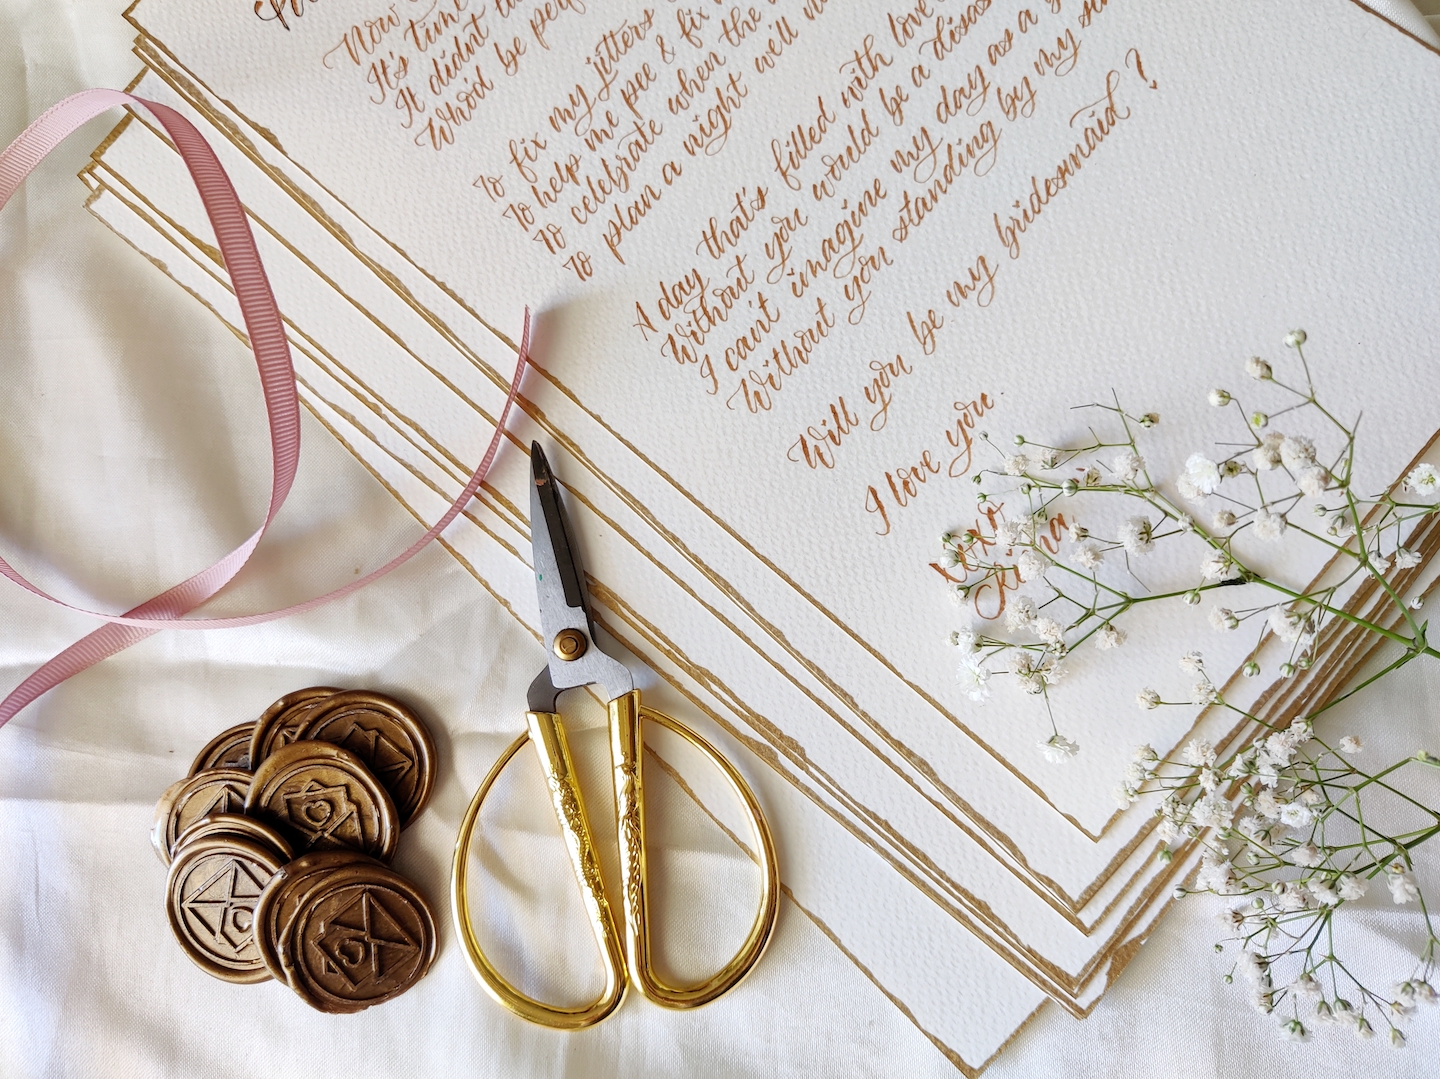 Now
It's time
It didn't
Who'd be
To fix my jitters
To help me pee & fix
To celebrate when the
To plan a night we'll
A day that's filled with love
Without you would be a
I can't imagine my day as a
Without you standing by my
Will you be my bridesmaid?
I love you
xoxo